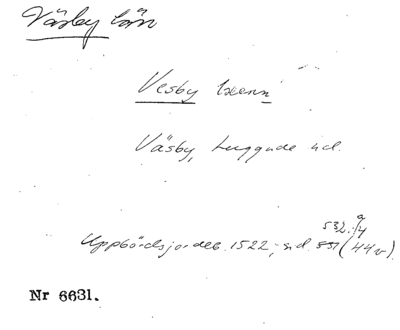 Väsby län
Vesby lxenn
Väsby, Luggude hd.
532:a/4
Uppbördsjordeb. 1522; sid. 531 (44v).
Nr 6631.